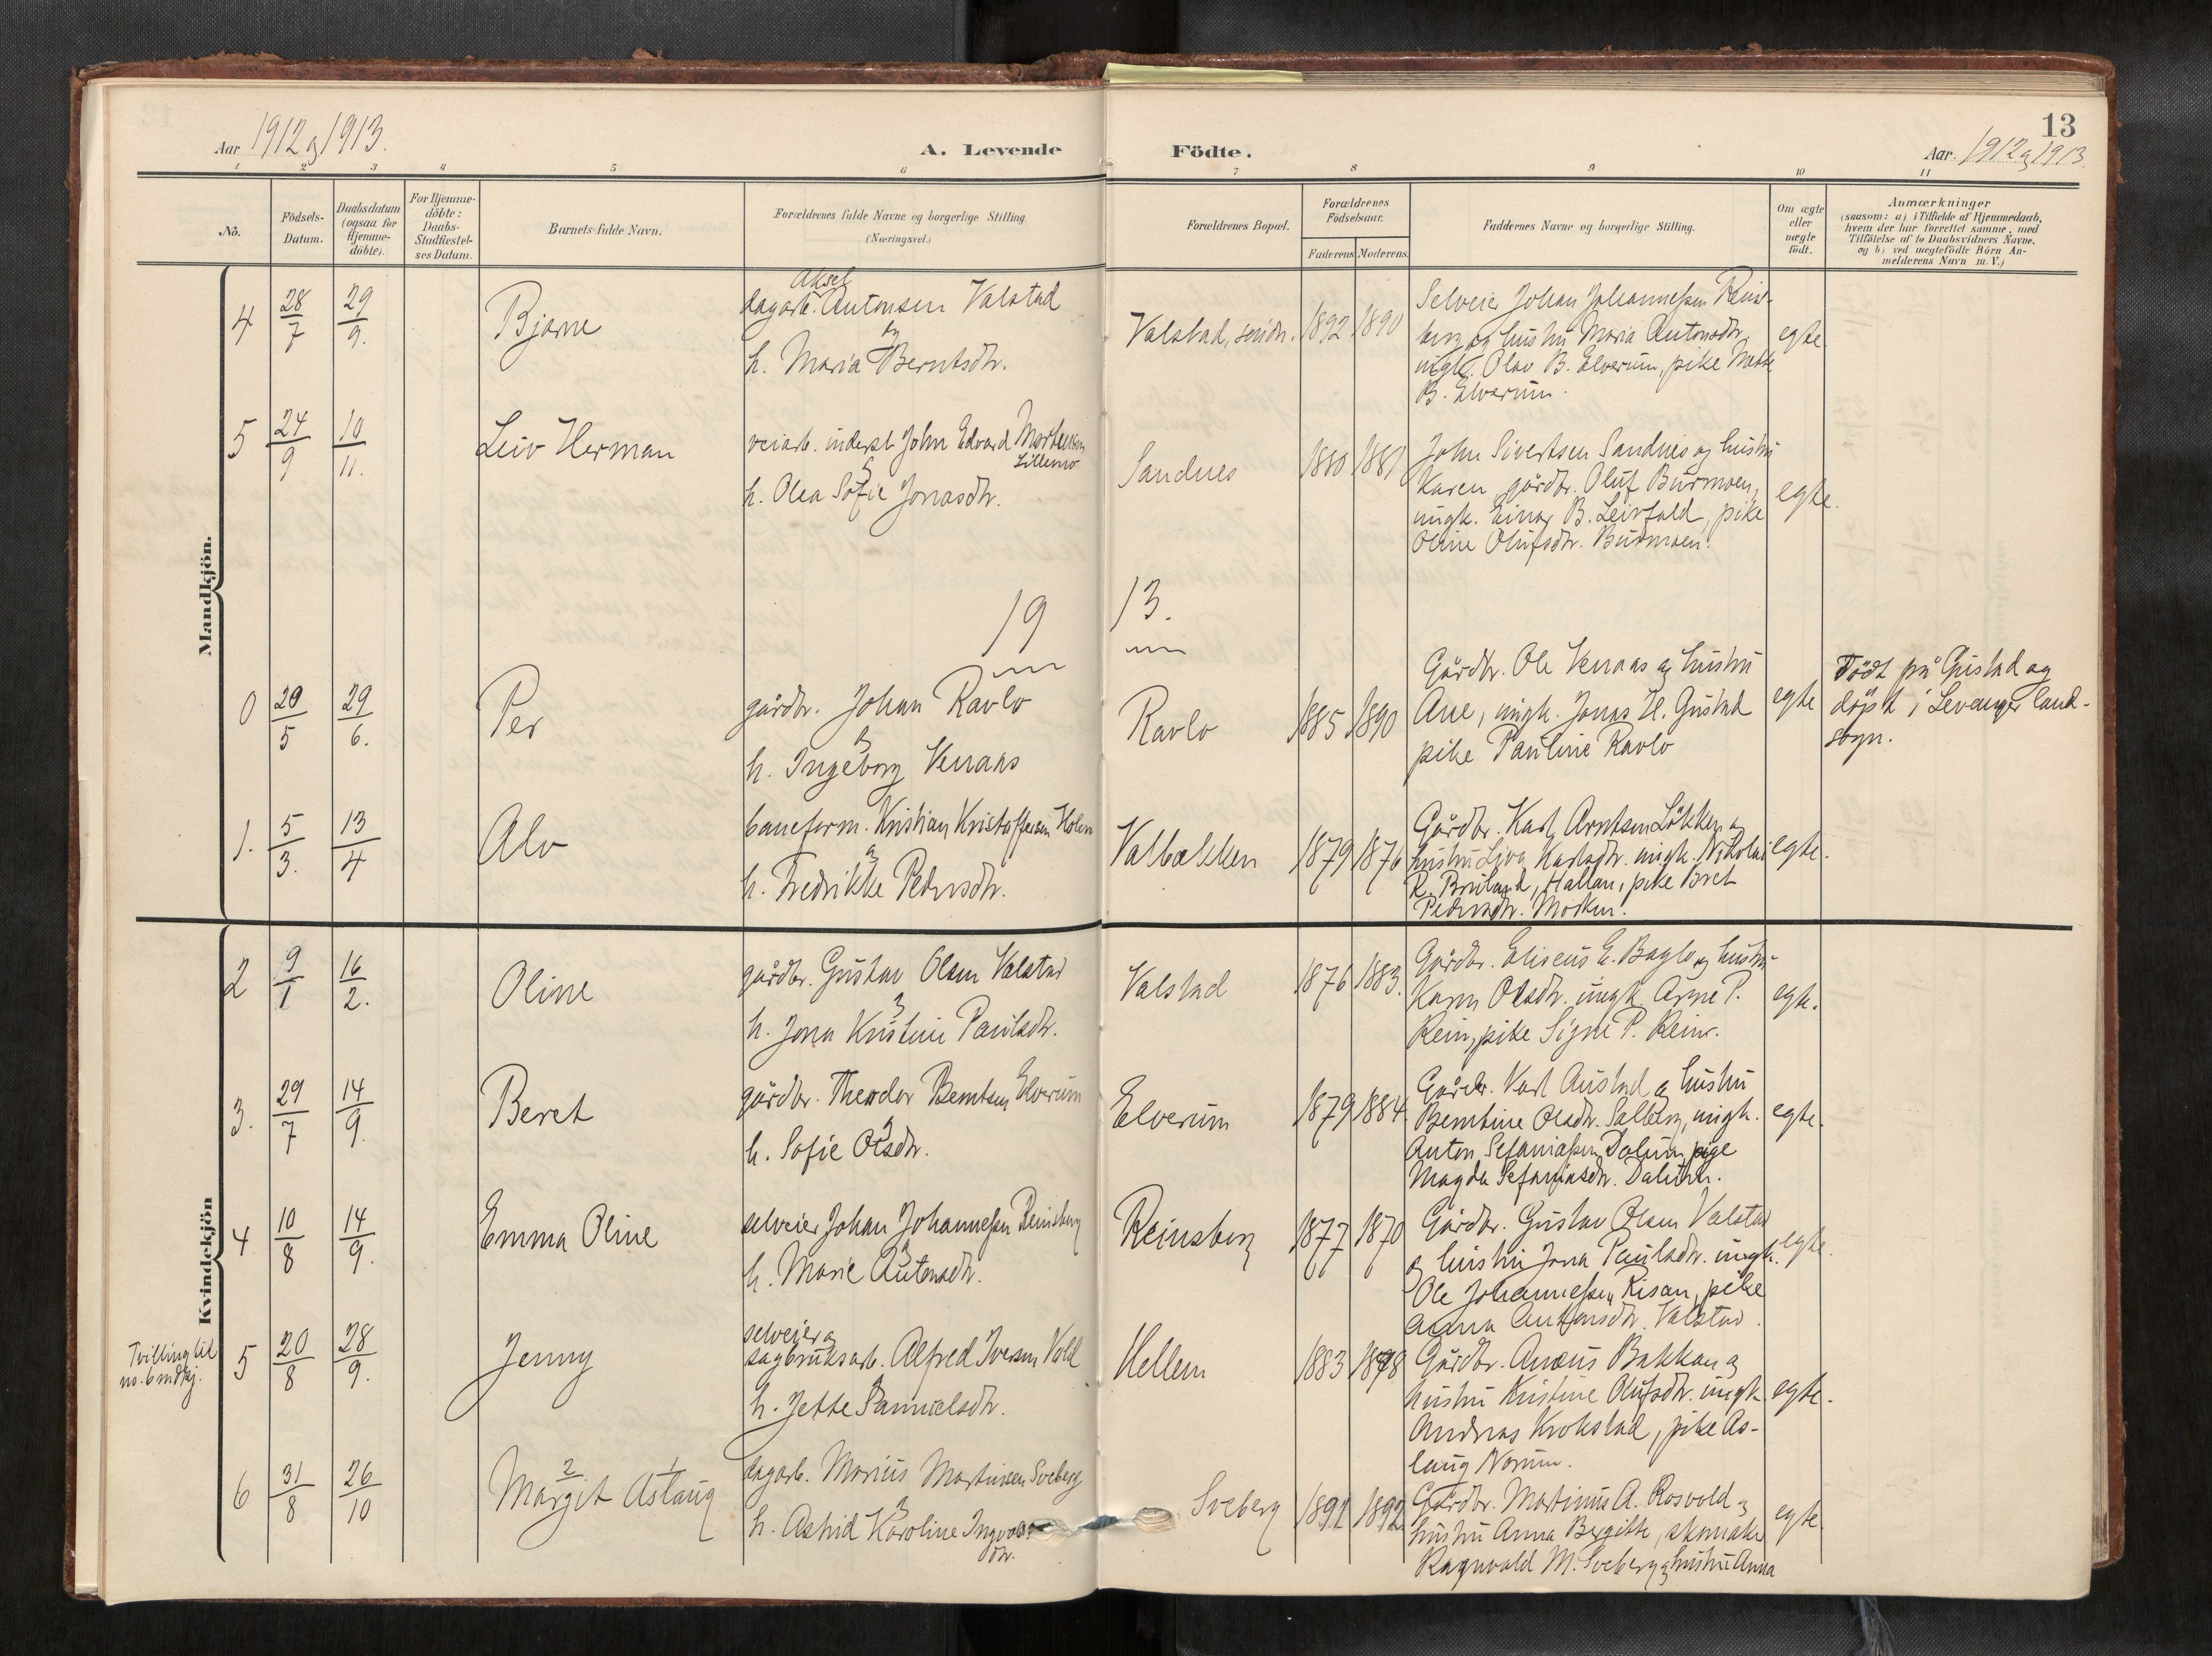 Aar 1912 og 1913.
A. Levende Födte.
13
Aar. 1912 og 1913.
1 2 3 4 5 6 7 8 9 10 11
No.
Födsels-
Datum.
Daabsdatum
(ogsaa for
Hjemme-
döbte).
For Hjemme-
döbte:
Daabs-
Stadfæstel-
ses Datum.
Barnets fulde Navn.
Forældrenes fulde Navne og borgerlige Stilling
(Næringsvei.)
Forældrenes Bopæl.
Forældrenes
Födselsaar.
Faderens Moderens
Faddernes Navne og borgerlige Stilling.
Om ægte
eller
uægte
födt.
Anmærkninger
(saasom: a) i Tilfælde af Hjemmedaab,
hvem der har forrettet samme, med
Tilföielse af to Daabsvidners Navne.
og b) ved uægtefödte Börn An-
melderens Navn m.V.)
Mandkjön.
4 28/7 29/9. Bjarne
Aksel
dagarb. Antonsen Valstad
og
h. Maria Berntsdtr.
Valstad, söndr. 1892 1890
Selveier Johan Johannessen Reins-
berg og hustru Maria Antonsdtr.
ungk. Olav B. Elverum, pike
B. Elverum.
egte
5 24/9 10/11. Leiv Herman
veiarb. inderst John Edvard Mortensen
Lillemo
og
h. Olea Sofie Jonasdtr.
Sandnes 1880 1881
John Sivertsen Sandnes og hustru
Karen, gårdbr. Oluf Burmoen,
ungk. Einar B. Leirfald, pike
Oline Olufsdtr. Burmoen.
egte.
19 13.
0 20/5 29/6. Per
gårdbr. Johan Ravlo
og
h. Ingeborg Venaas
Ravlo 1885 1890
Gårdbr. Ole Venaas og hustru
Ane, ungk. Jonas H. Gustad
pike Pauline Ravlo
egte
Födt på Gustad og
döpt i Levanger land-
sogn.
1. 5/3. 13/4 Alv
baneform. Kristian Kristoffersen Holen
og
h. Fredrikke Pedersdtr.
Valbakken 1879 1876
Gårdbr. Karl Arntsen Lökken og
hustru Karlsdtr. ungk. Nikolai
R. Hallan, pike Beret
Pedersdtr. Mosken.
egte.
Kvindekjön
2 9/1 16/2. Oline
gårdbr. Gustav Olsen Valstad
og
h. Jona Kristine Paulsdtr.
Valstad 1876 1883.
Gårdbr. Eliseus E. Baglo og hustru
Karen Olsdtr. ungk. Arne P.
Rein, pike Signe P. Rein.
egte.
3. 29/7 14/9. Beret
gårdbr. Theodor Berntsen Elverum
og
h. Sofie Olsdtr.
Elverum 1879 1884.
Gårdbr. Karl Austad og hustru
Berntine Olsdtr. Salberg, ungk.
Anton Sefaniassen Dalum, pige
Magda Sefaniasdtr. Dalum.
egte.
4 10/8 14/9. Emma Oline
selveier Johan Johannessen Reinsberg
og
h. Marie Antonsdtr.
Reinsberg 1877 1870
Gårdbr. Gustav Olsen Valstad
og hustru Jona Paulsdtr. ungk.
Ole Johannessen Risan, pike
Anna Antonsdtr. Valstad.
egte.
Tvilling til
no. 6 mdkj.
5 20/8 28/9. Jenny
selveier og
sagbruksarb. Alfred Iversen Vold
og
h. Jette Samuelsdtr.
Hellem 1883 1878
Gårdbr. Anæus Bakkan og
hustru Kristine Olufsdtr. ungk.
Andreas Krokstad, pike As-
laug Norum.
egte.
6 31/8 26/10
2 1
Margit Aslaug
dagarb. Marius Martinsen Sveberg
og
h. Astrid Karoline Ingvals-
dtr.
Sveberg 1891 1892
Gårdbr. Martinus A. Rosvold og
hustru Anna Bergitte, skomaker
Ragnvald M. Sveberg og hustru Anna
egte.